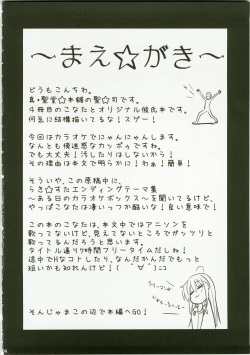 ～まえ☆がき～
どうもこんちわ。
真・聖堂☆本舗の聖☆司です。
4冊目のこなたとオリジナル彼氏本です。
何気に結構描いてるな!スゲー!
今回はカラオケでにゃんにゃんします。
なんとも傍迷惑なカッポゥですね。
でも大丈夫!汚したりはしないから!
その理由は本文で明らかに!わぉ!簡単!
そういや、この原稿中に、
らき☆すたエンディングテーマ集
～ある日のカラオケボックス～を聞いてるけど、
やっぱこなたは凄いっつか酷いな!良い意味で!
この本のこなたは、本文中ではアニソンを
歌ってないけど、見えてないところでガッツリと
歌ってるんだろうと思います。
タイトル通り7時間フリータイムだしね!
途中でHなコトしたり、なんだかんだでもっと
短いかも知れんけど!(゜∀゜)ニコ
そんじゃまこの辺で本編へGO!